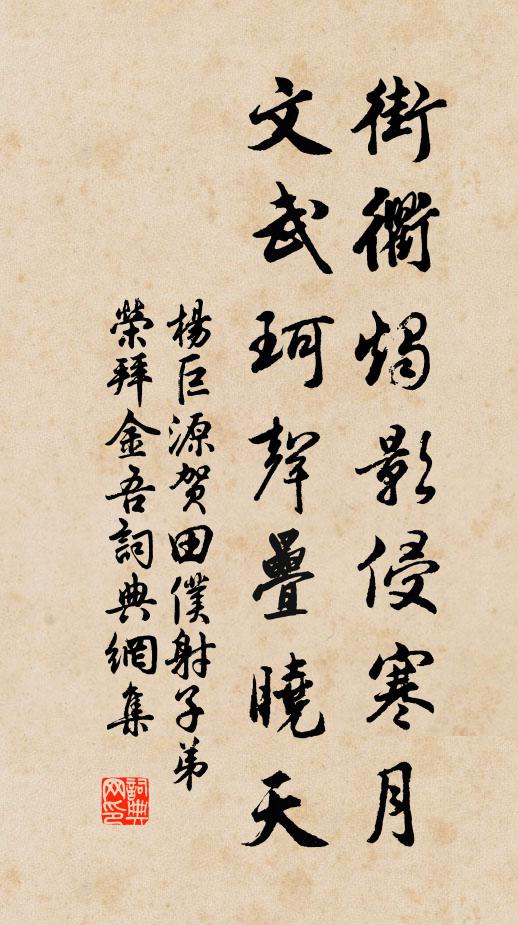 街衢燭影侵寒月
文武珂聲疊曉天
楊巨源賀田僕射子弟
榮拜金吾詞典網集
詞典网印